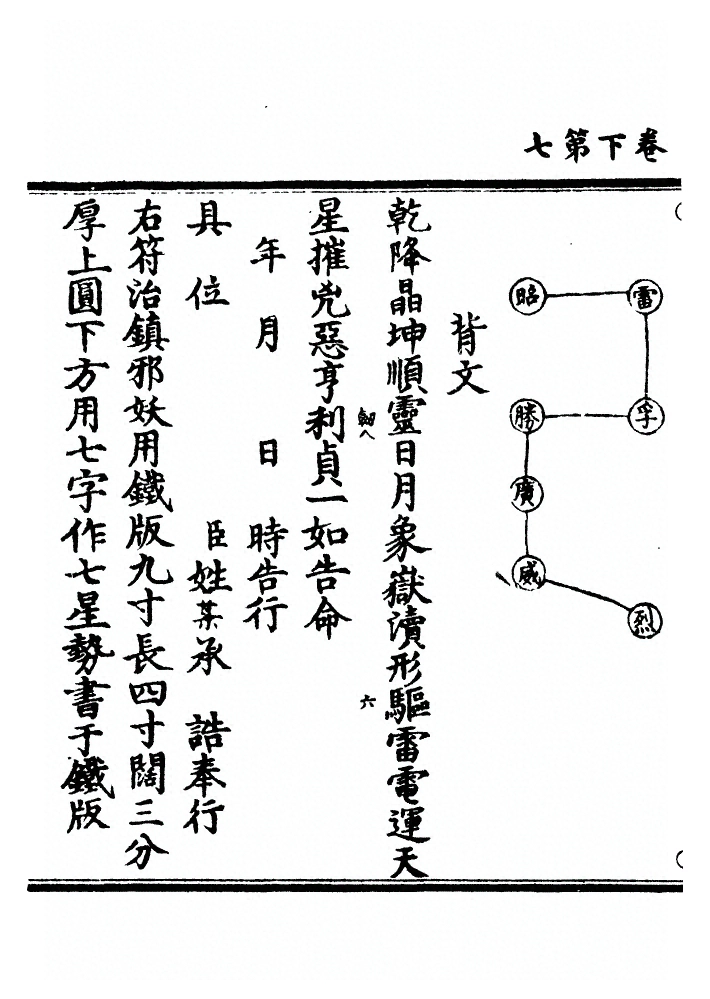 卷下第七
昭
雷
孚
勝
廣
威
烈
背文
乾降晶坤順靈日月象嶽瀆形驅雷電運天
勀八
六
星摧兇惡亨利貞一如告命
年 月 日 時告行
具 位 臣姓某承 誥奉行
右符治鎮邪妖用鐵版九寸長四寸闊三分
厚上圓下方用七字作七星勢書于鐵版